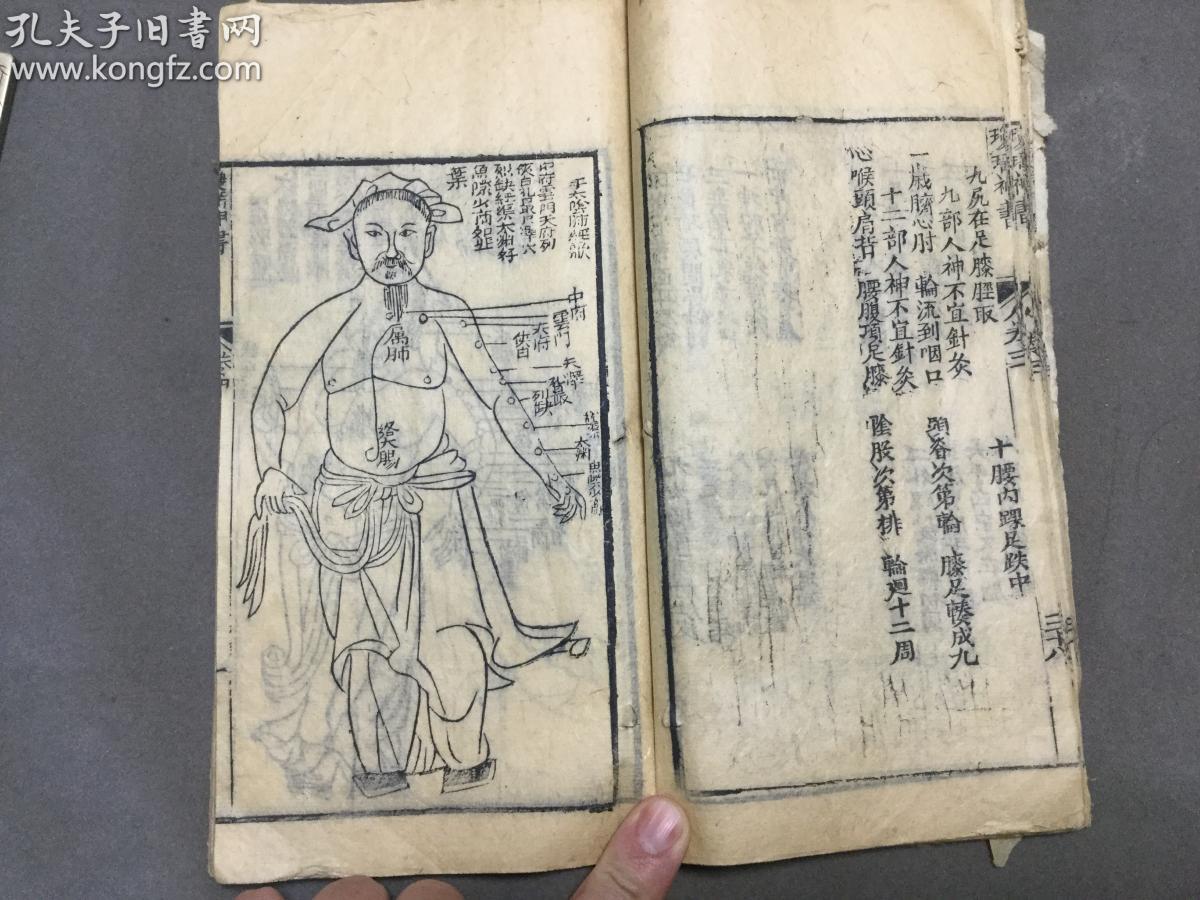 孔夫子旧书网
www.kongfz.com
九尻在足膝脛取
十腰內踝足趺中
九部人神不宜針灸
一臍心肘
輪流到咽口
頭脊次第輪
膝足輳成九
十二部人神不宜針灸
心喉頭肩背
腰腹項足膝
陰股次第排
輪廻十二周
卷三
三十八
手太陰肺經歌
中府雲門天府列
俠白孔最尺澤穴
列缺經渠太淵
魚際少商如韭
葉
中府
雲門
天府
俠白
尺澤
孔最
列缺
經渠
太淵
属肺
絡大腸
卷四